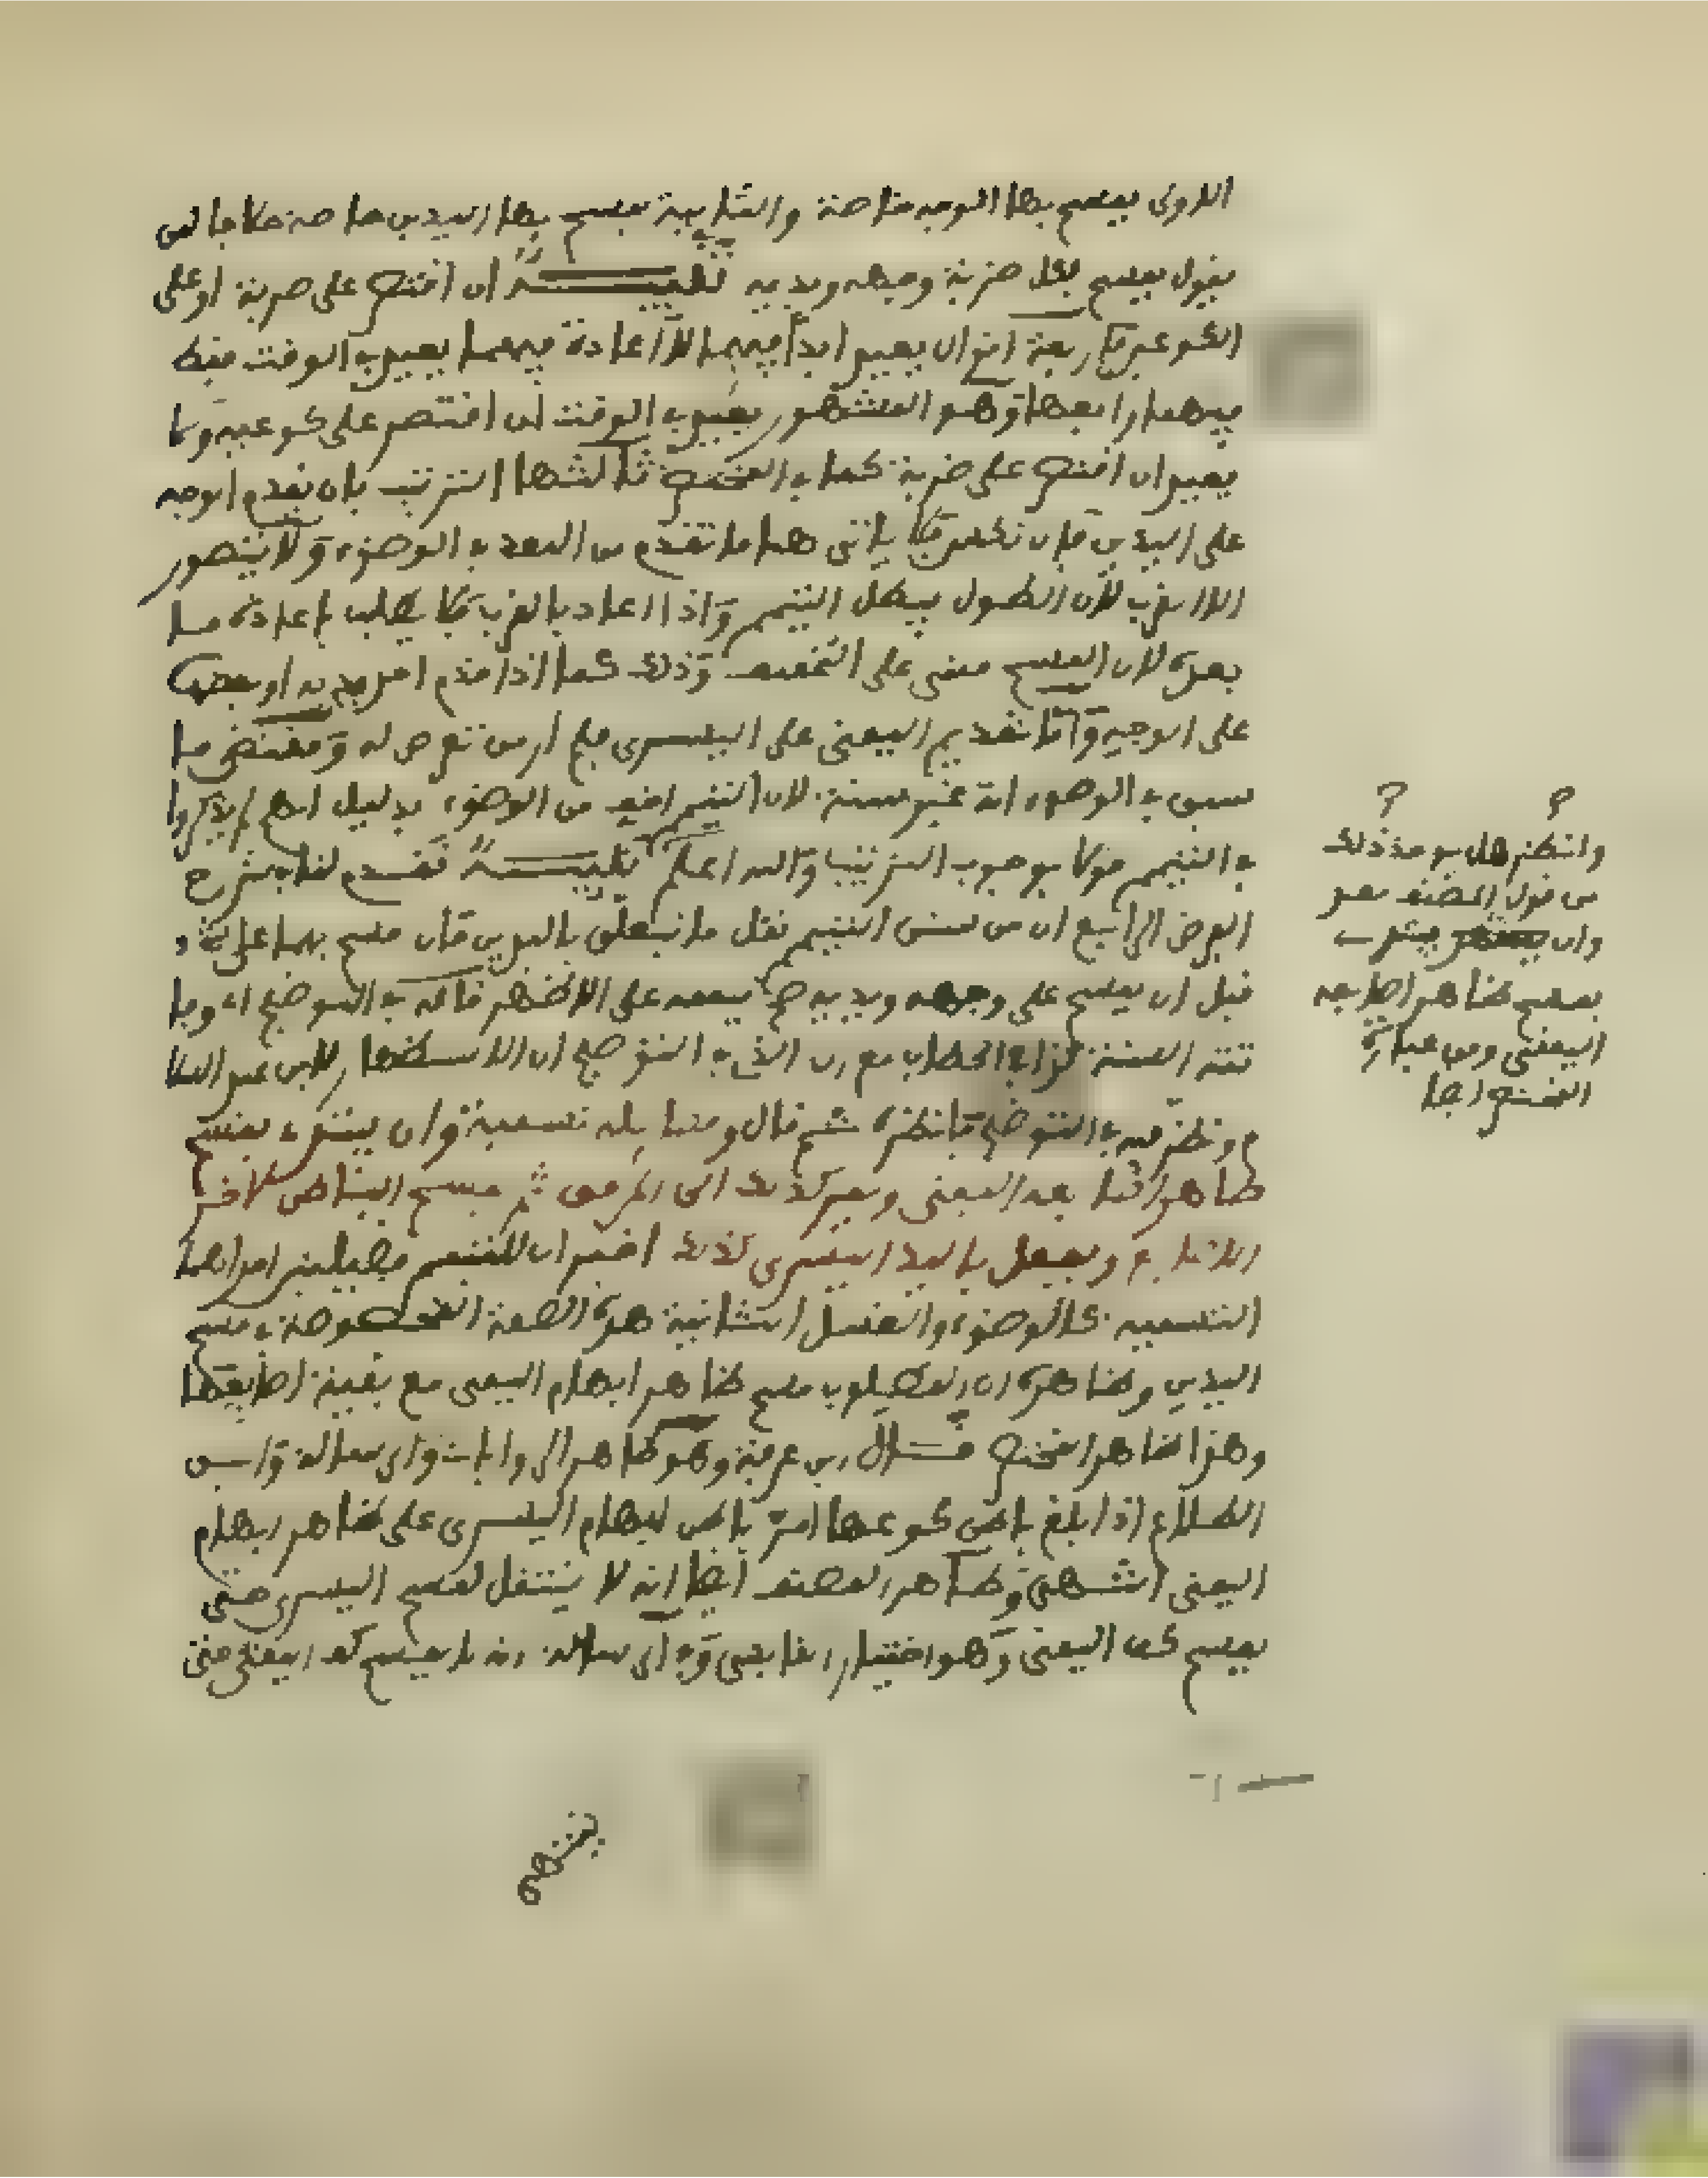 الاولى يمسح بها الوجه خاصة والثانية يمسح بها اليدين خاصة خلافا لمن
يقول يمسح بكل ضربة وجهه ويديه تنبيه ان اقتصر على ضربة او على
الكوعين اربعة اقوال يعيد ابدا فيهما لا اعادة فيهما يعيد في الوقت فيهما
رابعها وهو المشهور يعيد في الوقت ان اقتصر على كوعيه ولا
يعيد ان اقتصر على ضربة كما في المختصر ثالثها الترتيب بان يقدم الوجه
على اليدين فان نكس ياتى هنا ما تقدم من البعد في الوضوء ولا يتصور
الا القرب لان الطول يبطل التيمم واذا اعاد بالقرب فلا يطلب باعادة ما
بعده لان المسح مبنى على التخفيف وذلك كما اذا قدم احدى يديه او
على الوجه واما تقديم اليمنى على اليسرى فلم ار من تعرض له ومقتضى ما
سبق في الوضوء انه غير سنة لان التيمم اخف من الوضوء بدليل انهم لم يذكروا
في التيمم قولا بوجوب الترتيب والله اعلم تنبيه تقدم لنا في شرح
الفرض الرابع ان من سنن التيمم نقل ما تعلق باليدين فان مسح بهما على شىء
قبل ان يمسح على وجهه ويديه صح تيممه على الاظهر قاله في التوضيح
تتمة السنة كذا في الحطاب مع ان الذى في التوضيح ان الاستظهار لابن عبد السلام
ونظر فيه في التوضيح فانظره ثم قال وفضائله تسمية وان يبتدىء بمسح
ظاهر اليمنى الى المرفق ثم يمسح الباطن لآخر
الاصابع ويفعل باليد اليسرى كذلك اخبر ان للتيمم فضيلتين احداهما
التسمية كالوضوء والغسل الثانية هذه الصفة المخصوصة في مسح
اليدين وظاهره ان المطلوب مسح ظاهر ابهام اليمنى مع بقية اصابعها
وهذا ظاهر المختصر قال ابن عرفة وهو ظاهر الروايات والرسالة وابن
الطلاع اذا بلغ باطن كوعها امر باطن ابهام اليسرى على ظاهر ابهام
اليمنى انتهى وظاهر المصنف ايضا انه لا ينتقل لمسح اليسرى حتى
يمسح كف اليمنى وهو اختيار القابسى وفى الرسالة انه لا يمسح كف اليمنى حتى
وانظر هل يوخذ ذلك
من قول المصنف بعد
وان يبتدى
بمسح ظاهر اصابعه
اليمنى ومن عبارة
المختصر ايضا